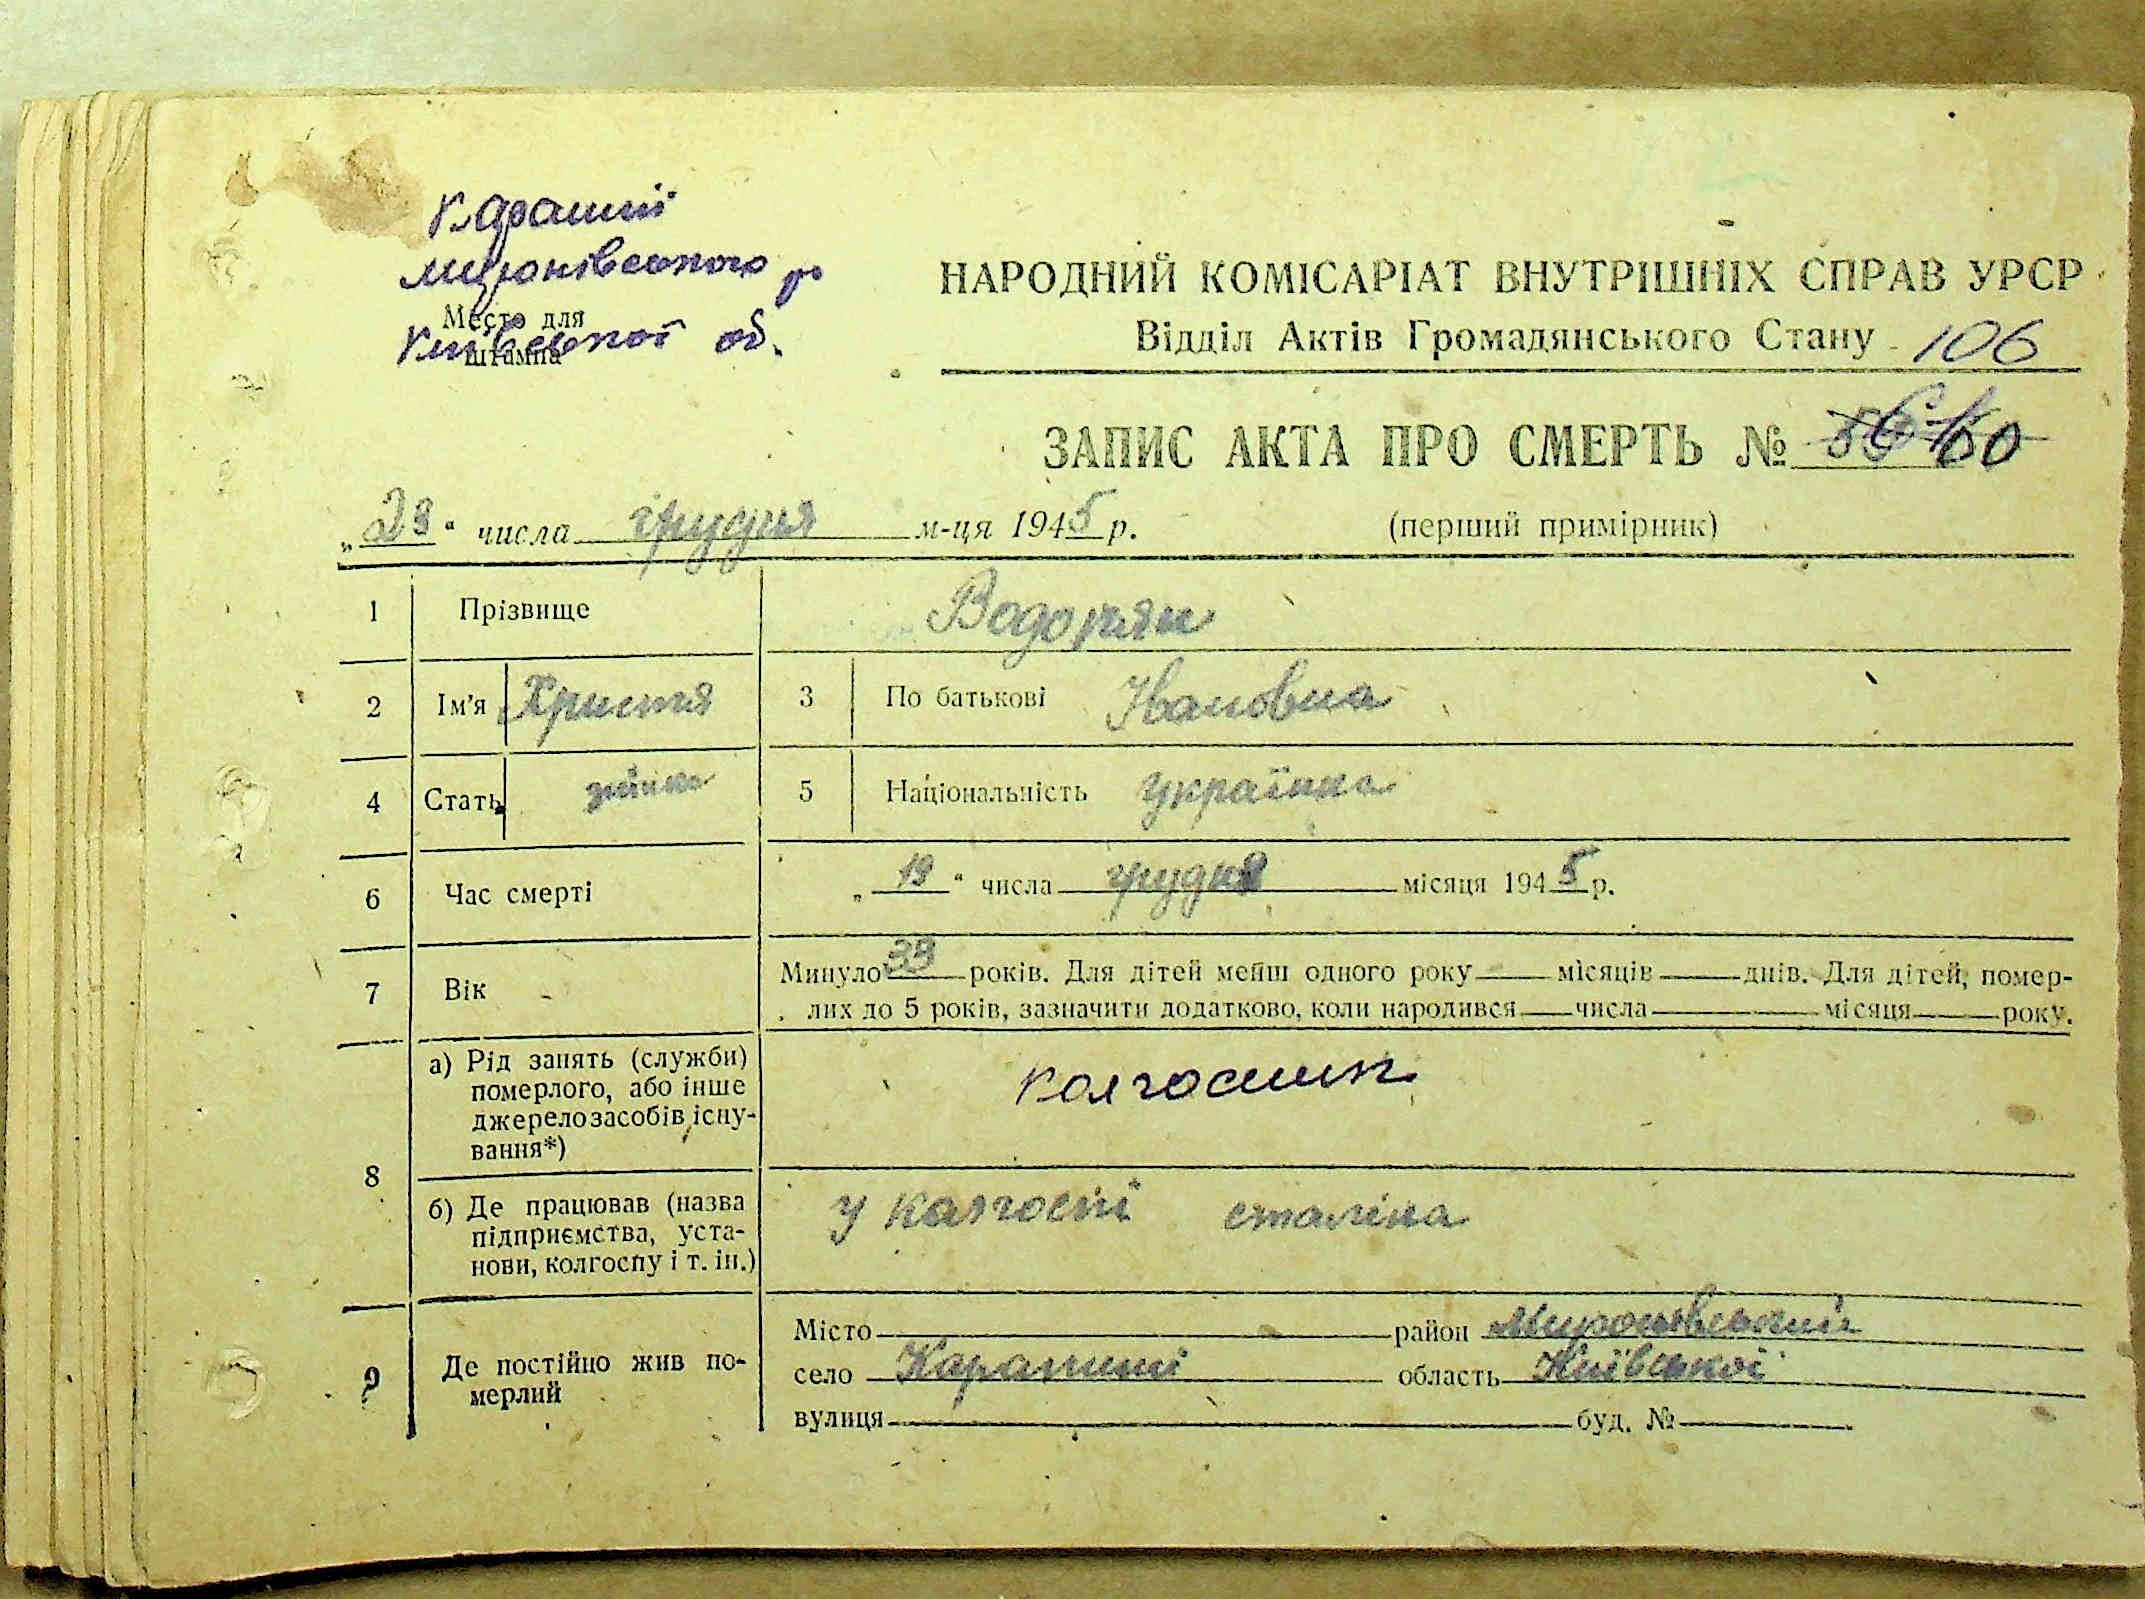 Карапиші
миронівського р
Место для
штампа
Київської об.
НАРОДНИЙ КОМІСАРІАТ ВНУТРІШНІХ СПРАВ УРСР
Відділ Актів Громадянського Стану 106
ЗАПИС АКТА ПРО СМЕРТЬ № 60
"28" числа грудня м-ця 1945 р. (перший примірник)
1 Прізвище Водоп'ян
2 Ім'я Христя 3 По батькові Івановна
4 Стать жінка 5 Національність українка
6 Час смерті "19" числа грудня місяця 1945 р.
7 Вік Минуло 39 років. Для дітей менш одного року місяців днів. Для дітей, помер-
лих до 5 років, зазначити додатково, коли народився числа місяця року.
8 а) Рід занять (служби)
померлого, або інше
джерело засобів існу-
вання*)
колгоспник
б) Де працював (назва
підприємства, уста-
нови, колгоспу і т. ін.)
у колгоспі сталіна
9 Де постійно жив по-
мерлий
Місто район Миронівський
село Карапиші область Київської
вулиця буд. №